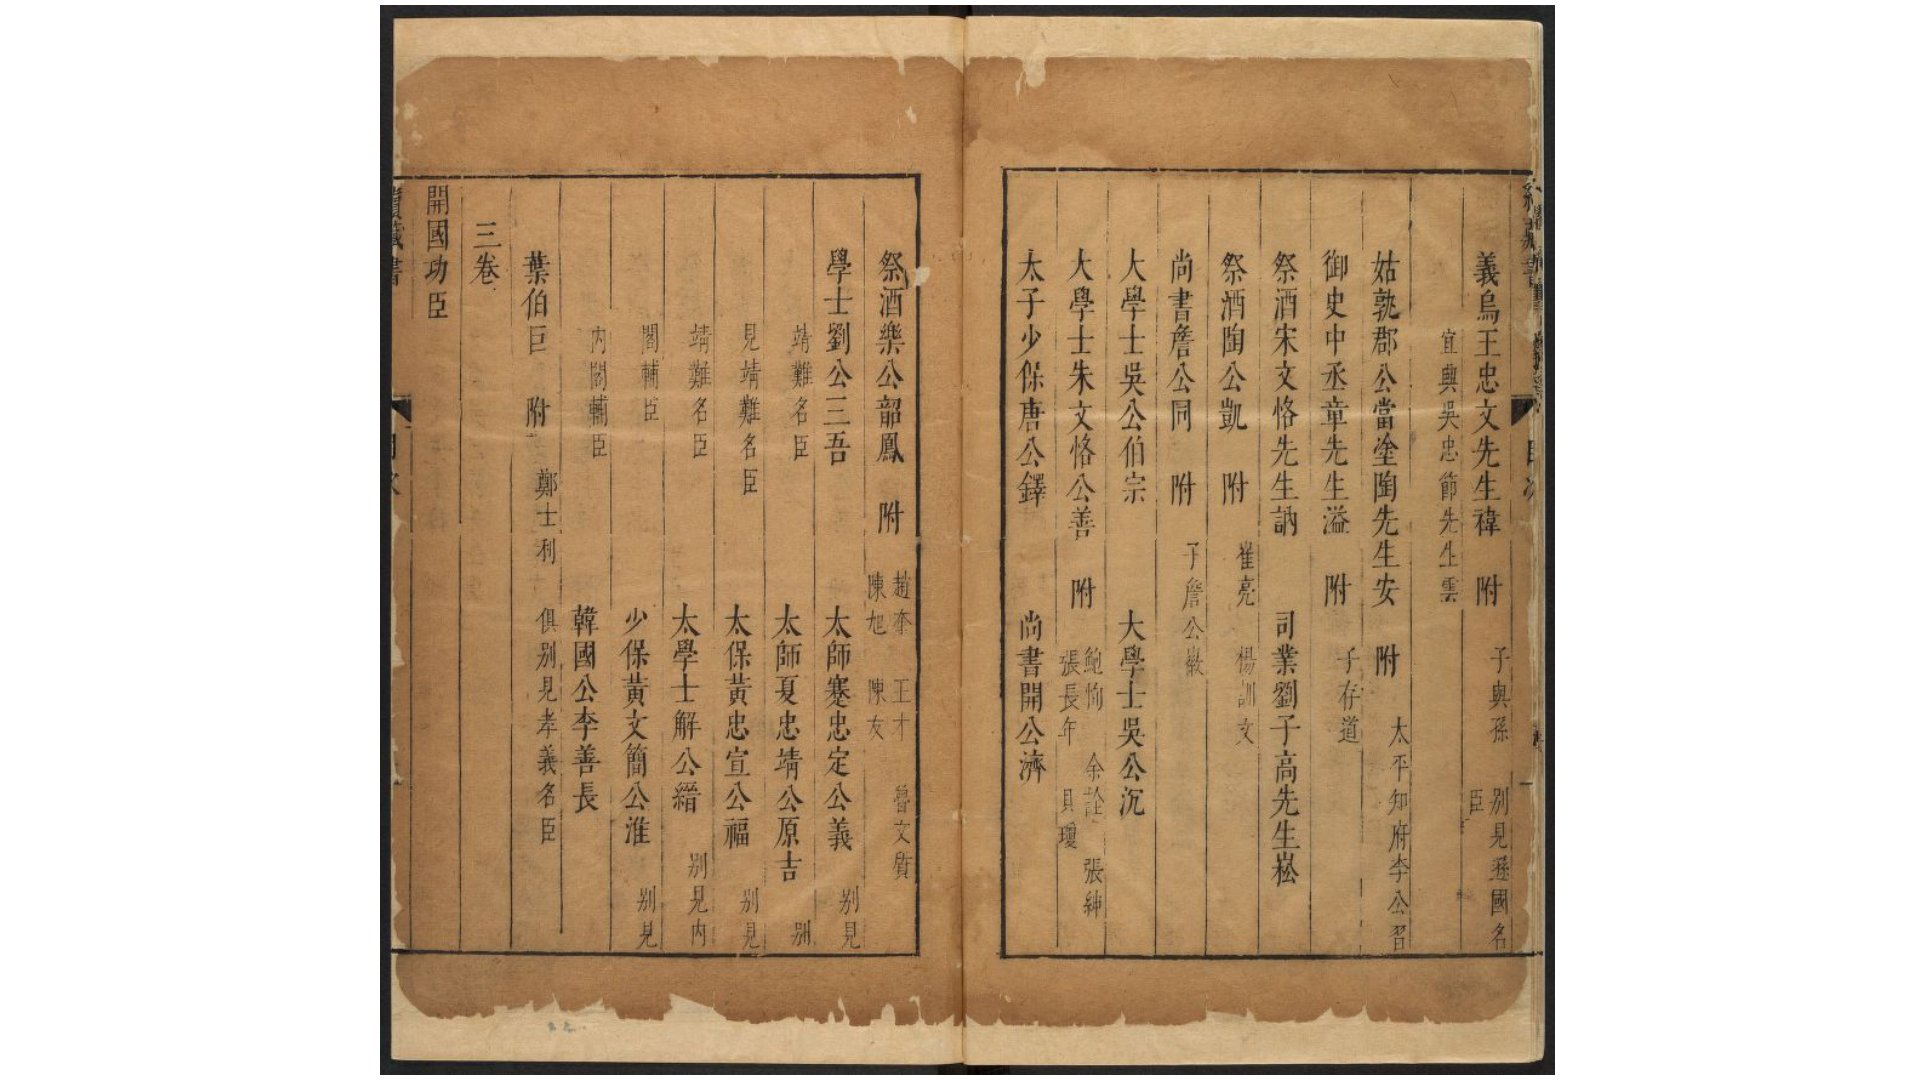 義烏王忠文先生禕　附　子與孫　別見遜國名臣
宜興吳忠節先生雲
姑孰郡公當塗陶先生安　附　太平知府李公習
御史中丞章先生溢　附　子存道
祭酒宋文恪先生訥　司業劉子高先生崧
祭酒陶公凱　附　崔亮　楊訓文
尚書詹公同　附　子詹公徽
大學士吳公伯宗　大學士吳公沉
大學士朱文恪公善　附　鮑恂　余詮　張紳　張長年　貝瓊
太子少保唐公鐸　尚書開公濟
祭酒樂公韶鳳　附　趙　王才　魯文質　陳旭　陳友
學士劉公三吾　太師蹇忠定公義　別見
靖難名臣　太師夏忠靖公原吉　別
見靖難名臣　太保黃忠宣公福　別見
靖難名臣　太學士解公縉　別見內
閣輔臣　少保黃文簡公淮　別見
內閣輔臣　韓國公李善長
葉伯巨　附　鄭士利　俱別見孝義名臣
三卷
開國功臣
續藏書